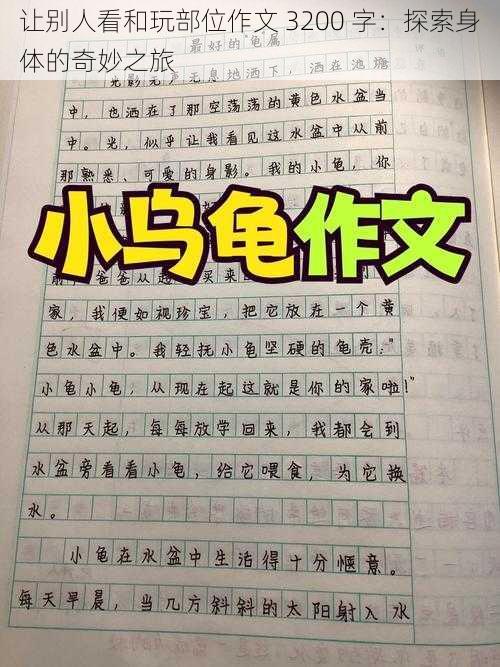 让别人看和玩部位作文 3200 字：探索身
体的奇妙之旅
最好的"龟属"
光影无声无息地洒下，洒在池塘
中，也洒在了那空荡荡的黄色水盆当
中。光，似乎让我看见这水盆中从前
那熟悉、可爱的身影。我的小龟，你
小乌龟作文
前，爸爸从
买来
家，我便如视珍宝，把它放在一个黄
色水盆中。我轻抚小龟坚硬的龟壳："
小龟小龟，从现在起这就是你的家啦！"
从那天起，每每放学回来，我都会到
水盆旁看看小龟，给它喂食，为它换
水。
小龟在水盆中生活得十分惬意。
每天早晨，当几方斜斜的太阳射入水